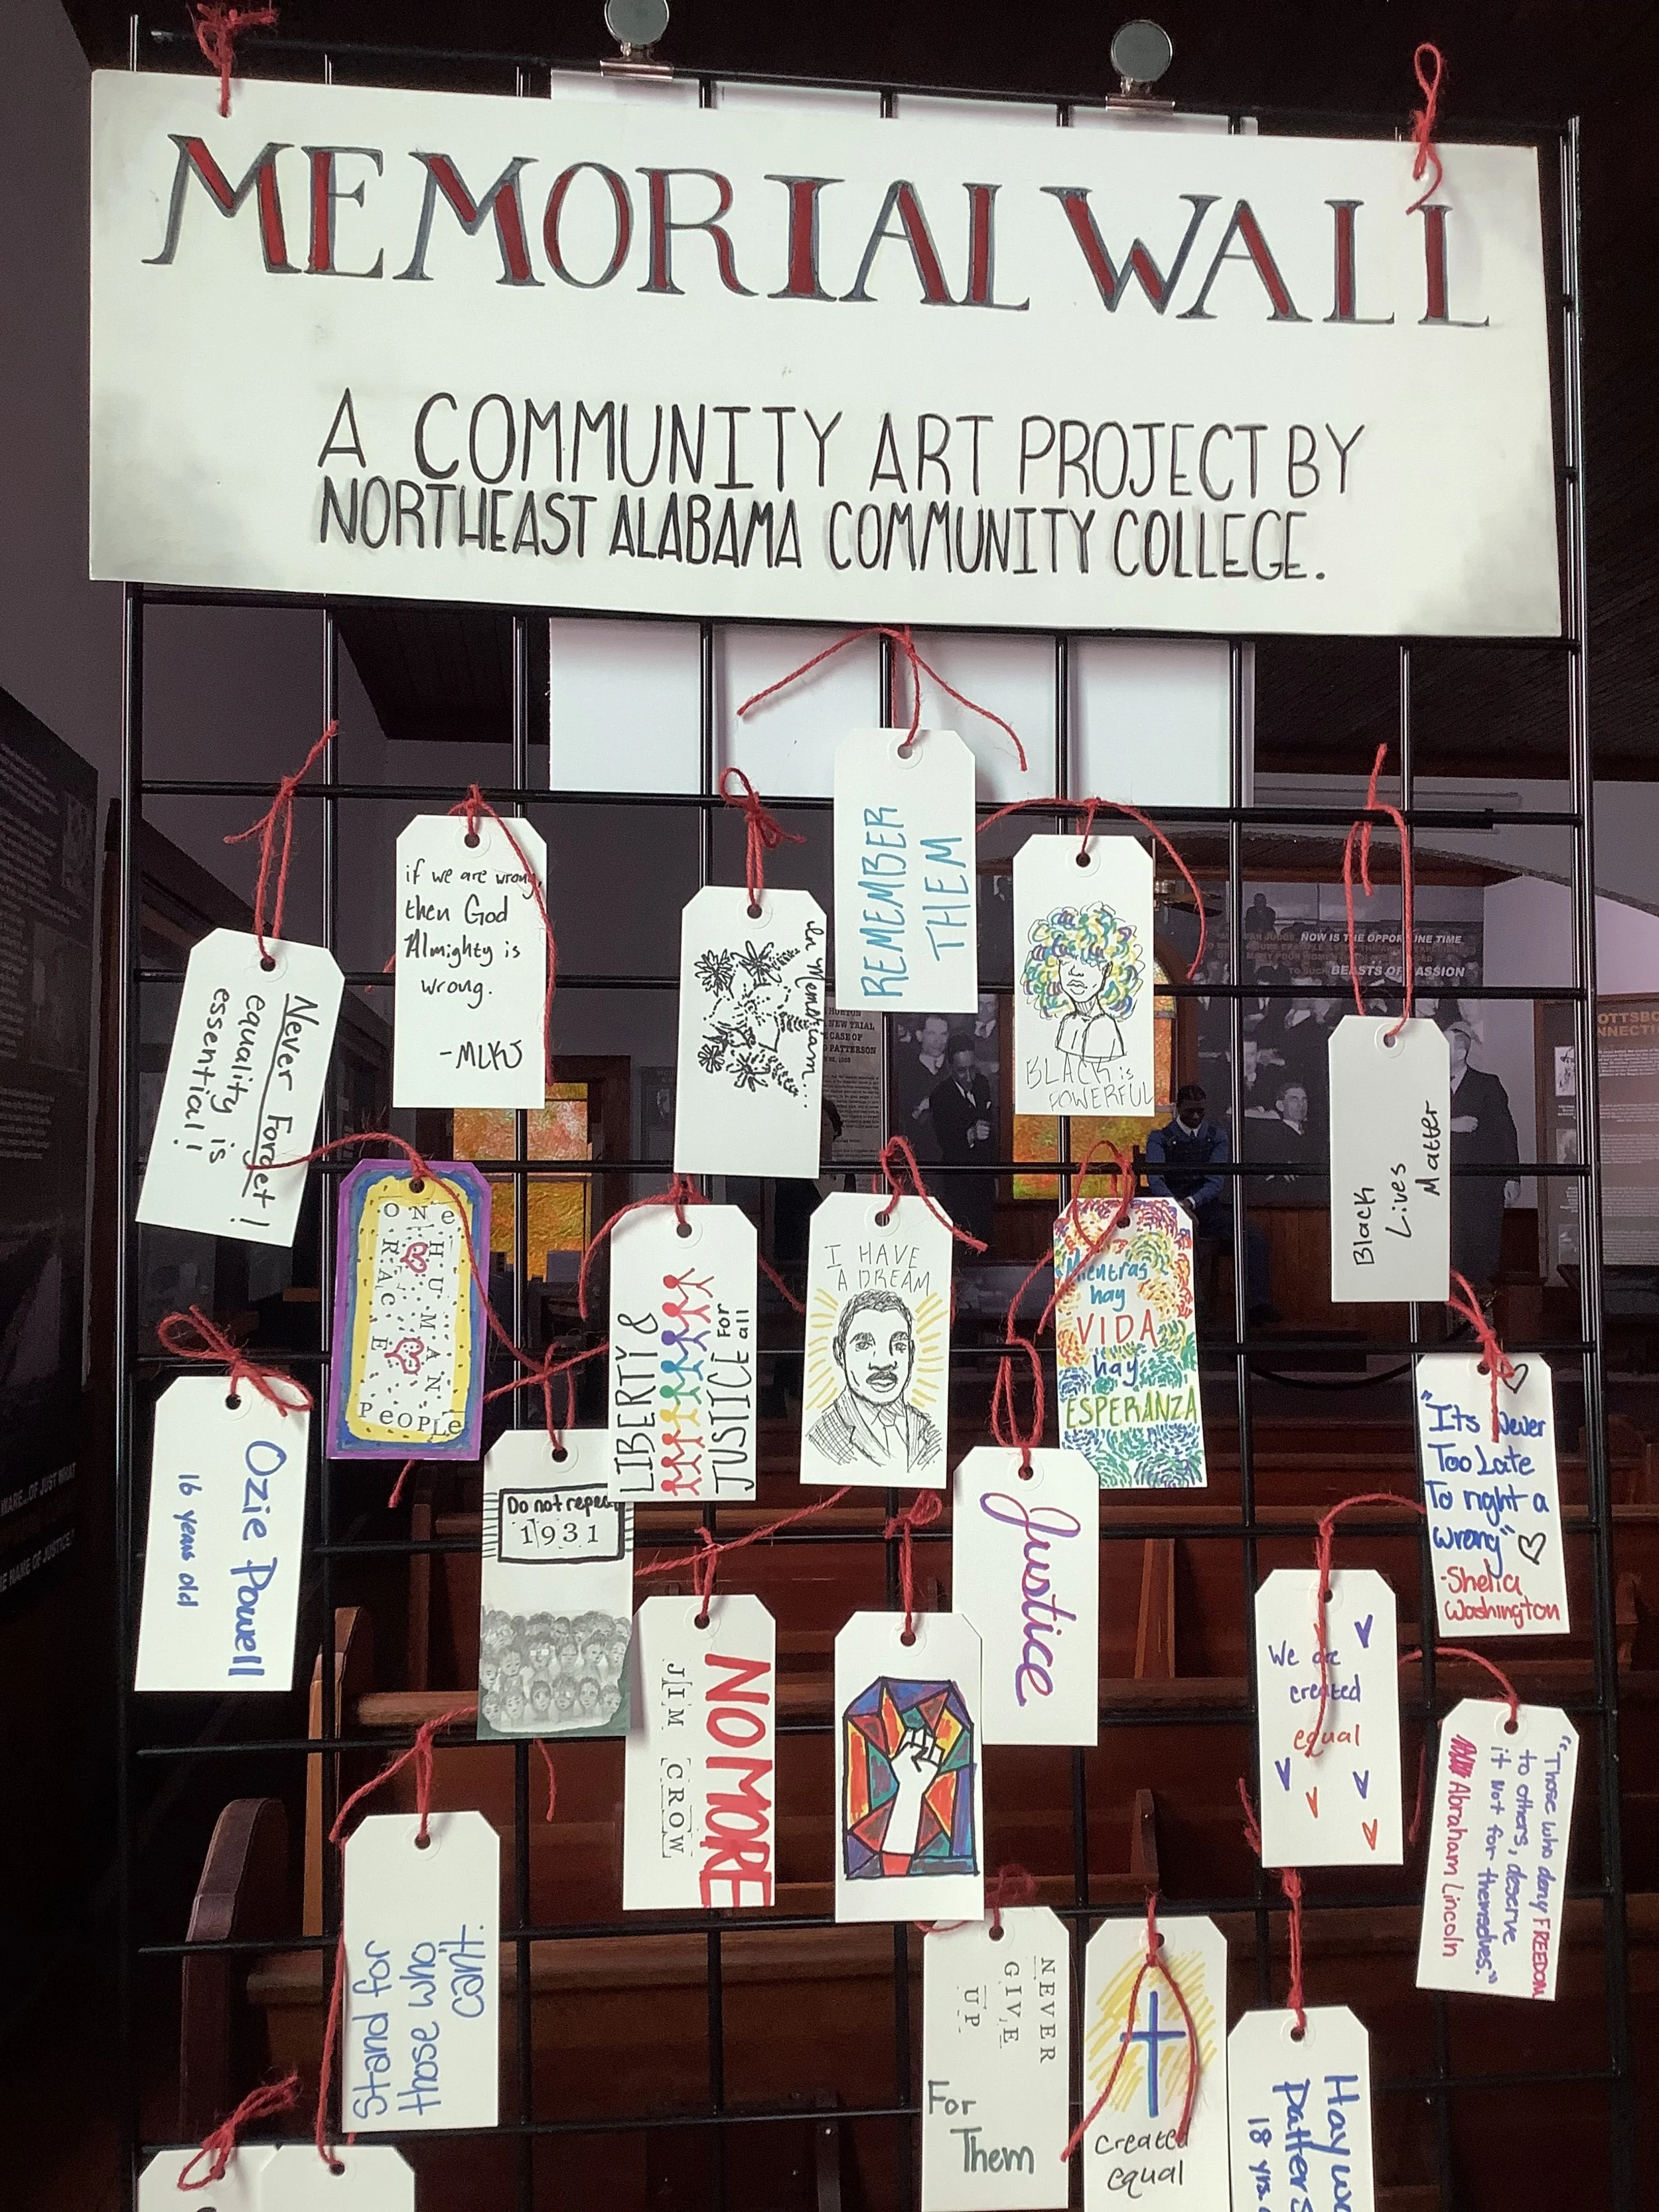 MEMORIAL WALL
A COMMUNITY ART PROJECT BY
NORTHEAST ALABAMA COMMUNITY COLLEGE.
REMEMBER
THEM
if we are wrong,
then God
Almighty is
wrong.
-MLKJ
In Memoriam...
BLACK is
POWERFUL
Never Forget!
equality is
essential!
Black
Lives
Matter
NOW IS THE OPPORTUNE TIME
BEASTS OF PASSION
HORTON
NEW TRIAL
CASE OF
PATTERSON
ONE
HUMAN
RACE
PEOPLE
LIBERTY &
JUSTICE For
all
I HAVE
A DREAM
Mientras
hay
VIDA
hay
ESPERANZA
Ozie Powell
16 years old
Do not repeat
1931
Justice
"Its Never
Too Late
To right a
wrong"
-Shelia
Washington
NO MORE
JIM CROW
We are
created
equal
"Those who deny FREEDOM
to others, deserve
it not for themselves."
Abraham Lincoln
Stand for
those who
can't.
NEVER
GIVE
UP
For
Them
created
equal
Haywo
Patters
18 yrs.